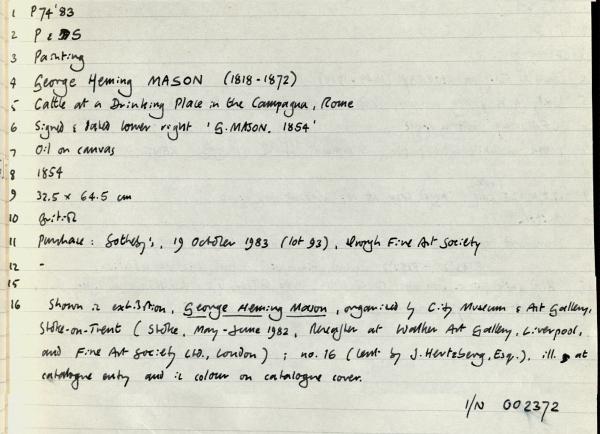 1 P74'83
2 P & S
3 Painting
4 George Heming MASON (1818-1872)
5 Cattle at a Drinking Place in the Campagna, Rome
6 Signed & dated lower right 'G. MASON. 1854'
7 Oil on canvas
8 1854
9 32.5 x 64.5 cm
10 British
11 Purchase: Sotheby's, 19 October 1983 (lot 93), through Fine Art Society
12 -
15
16 Shown in exhibition, George Heming Mason, organised by City Museum & Art Gallery,
Stoke-on-Trent (Stoke, May-June 1982, thereafter at Walker Art Gallery, Liverpool,
and Fine Art Society Ltd., London); no. 16 (lent by J. Hertzberg, Esq.), ill. at
catalogue entry and in colour on catalogue cover.
I/N 002372